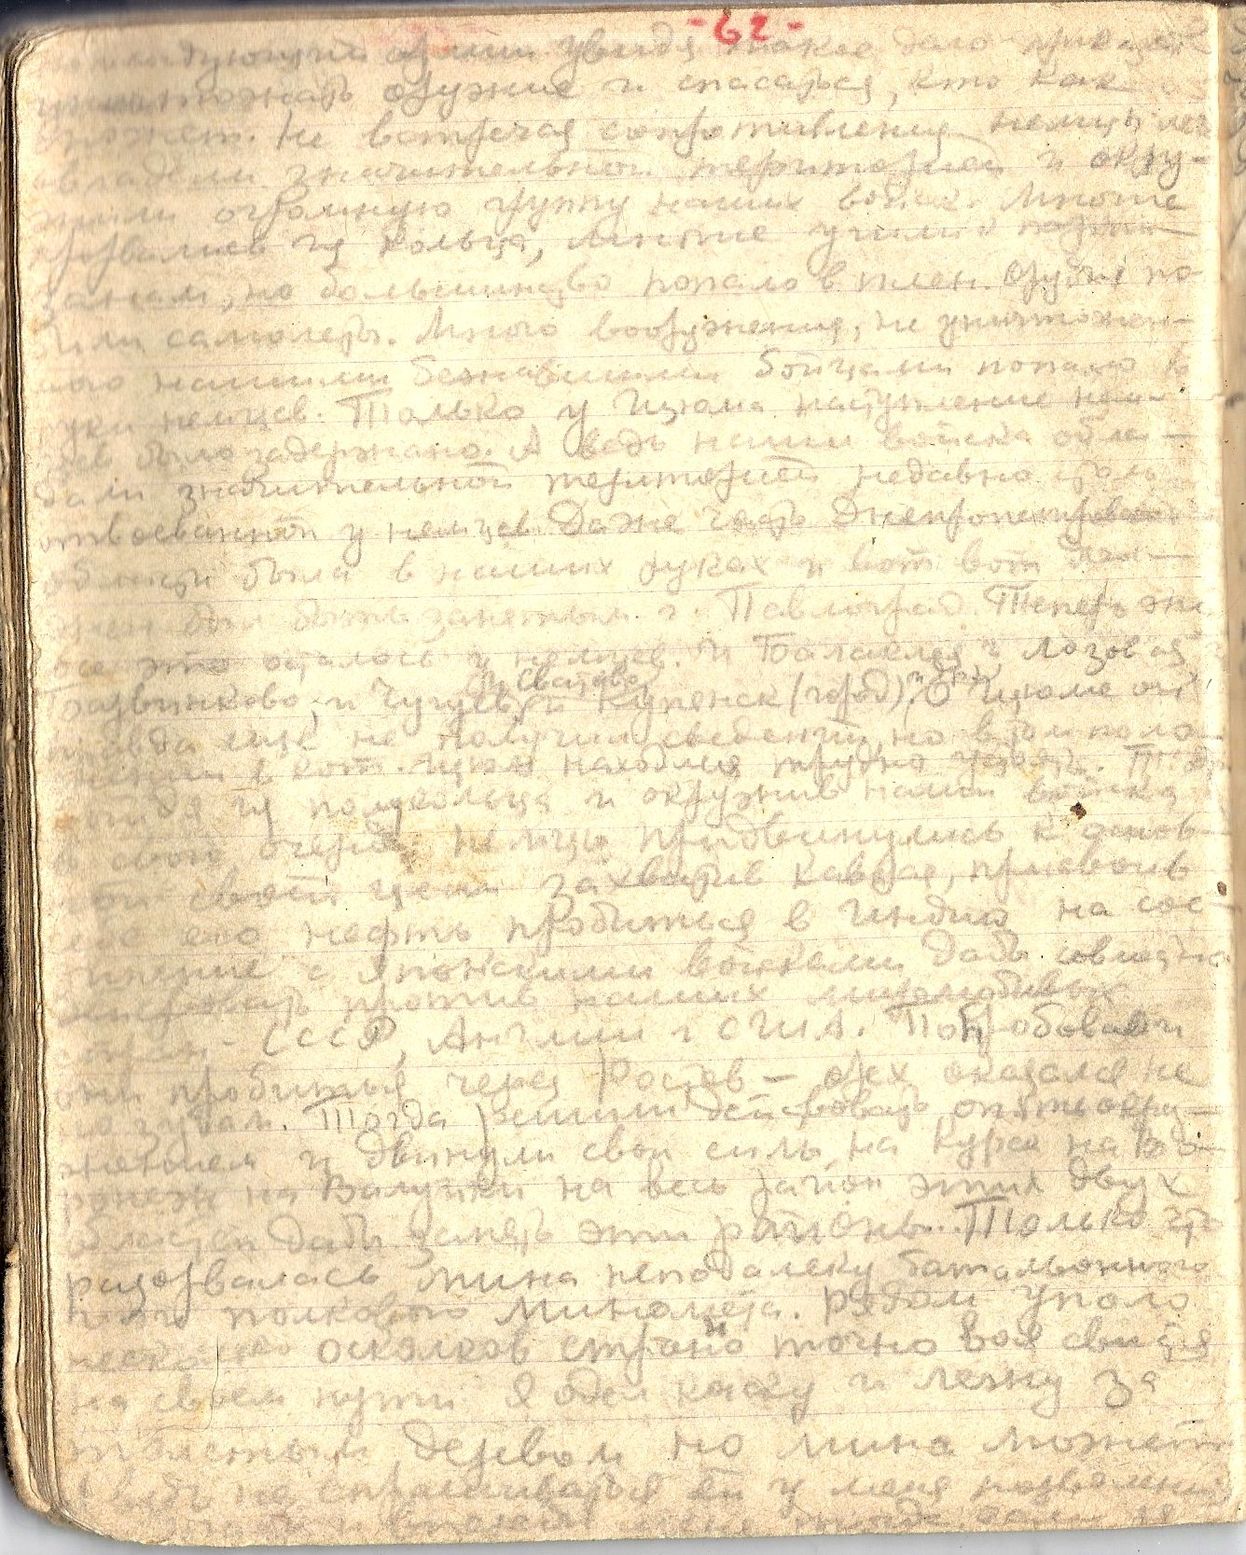 -62-
армии увидя такое дело приказал
уничтожать оружие и спасаться, кто как
может. Не встречая сопротивления немцы
овладели значительной территорией и окру-
жили огромную группу наших войск. Многие
прорвались из кольца, многие ушли к парти-
занам, но большинство попало в плен. Орудия по-
били самолеты. Много вооружения, не уничтожен-
ного нашими бежавшими бойцами попало в
руки немцев. Только у Изюма наступление нем-
цев было задержано. А ведь наши войска обла-
дали значительной территорией недавно
отвоеванной у немцев. Даже часть Днепропетровской
области была в наших руках и вот вот дол-
жен был быть занятым г. Павлоград. Теперь же
все это осталось у немцев. И Балаклея и Лозовая
и Сватово
Барвинково, и Чугуев, и Купянск (город). О Изюме от
еще не получил сведений, но в том поло-
жении в кот. Изюм находился трудно
из полукольца и окружив наши войска
в свою очередь немцы придвинулись к основ-
ной своей цели захватив Кавказ, присвоив
себе его нефть пробиться в Индию на сое-
динение с японскими войсками дабы совместно
против наших миролюбивых
стран - СССР, Англии и США. Попробовали
они пробиться через Ростов – орех оказался не
по зубам. Тогда решили действовать опять окру-
жением и двинули свои силы на Курск на Во-
ронеж на Валуйки на весь район этих двух
областей дабы занять эти районы. Только что
разорвалась мина неподалеку батальонного
полкового миномета. Рядом упало
несколько осколков странно точно воя свистя
на своем пути. Я одел каску и лежу за
толстым деревом но мина может
ведь не спрашиваться ей у меня